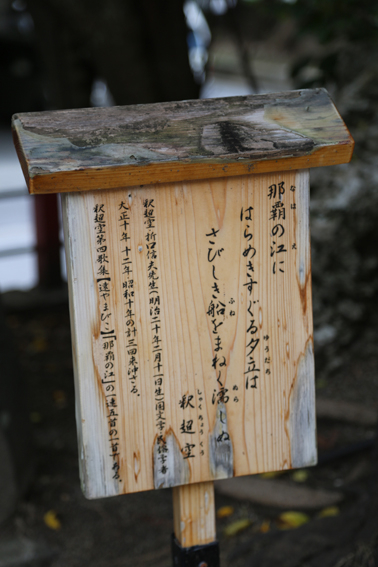 那覇の江に
はらめきすぐる夕立は
さびしき船をまねく濡しぬ
釈迢空
釈迢空 折口信夫先生(明治二十年二月十一日生)国文学・民俗学者
大正十年・十二年・昭和十年の計三回来沖さる。
釈迢空第四歌集【遠やまひこ】「那覇の江」の連五首の一首である。